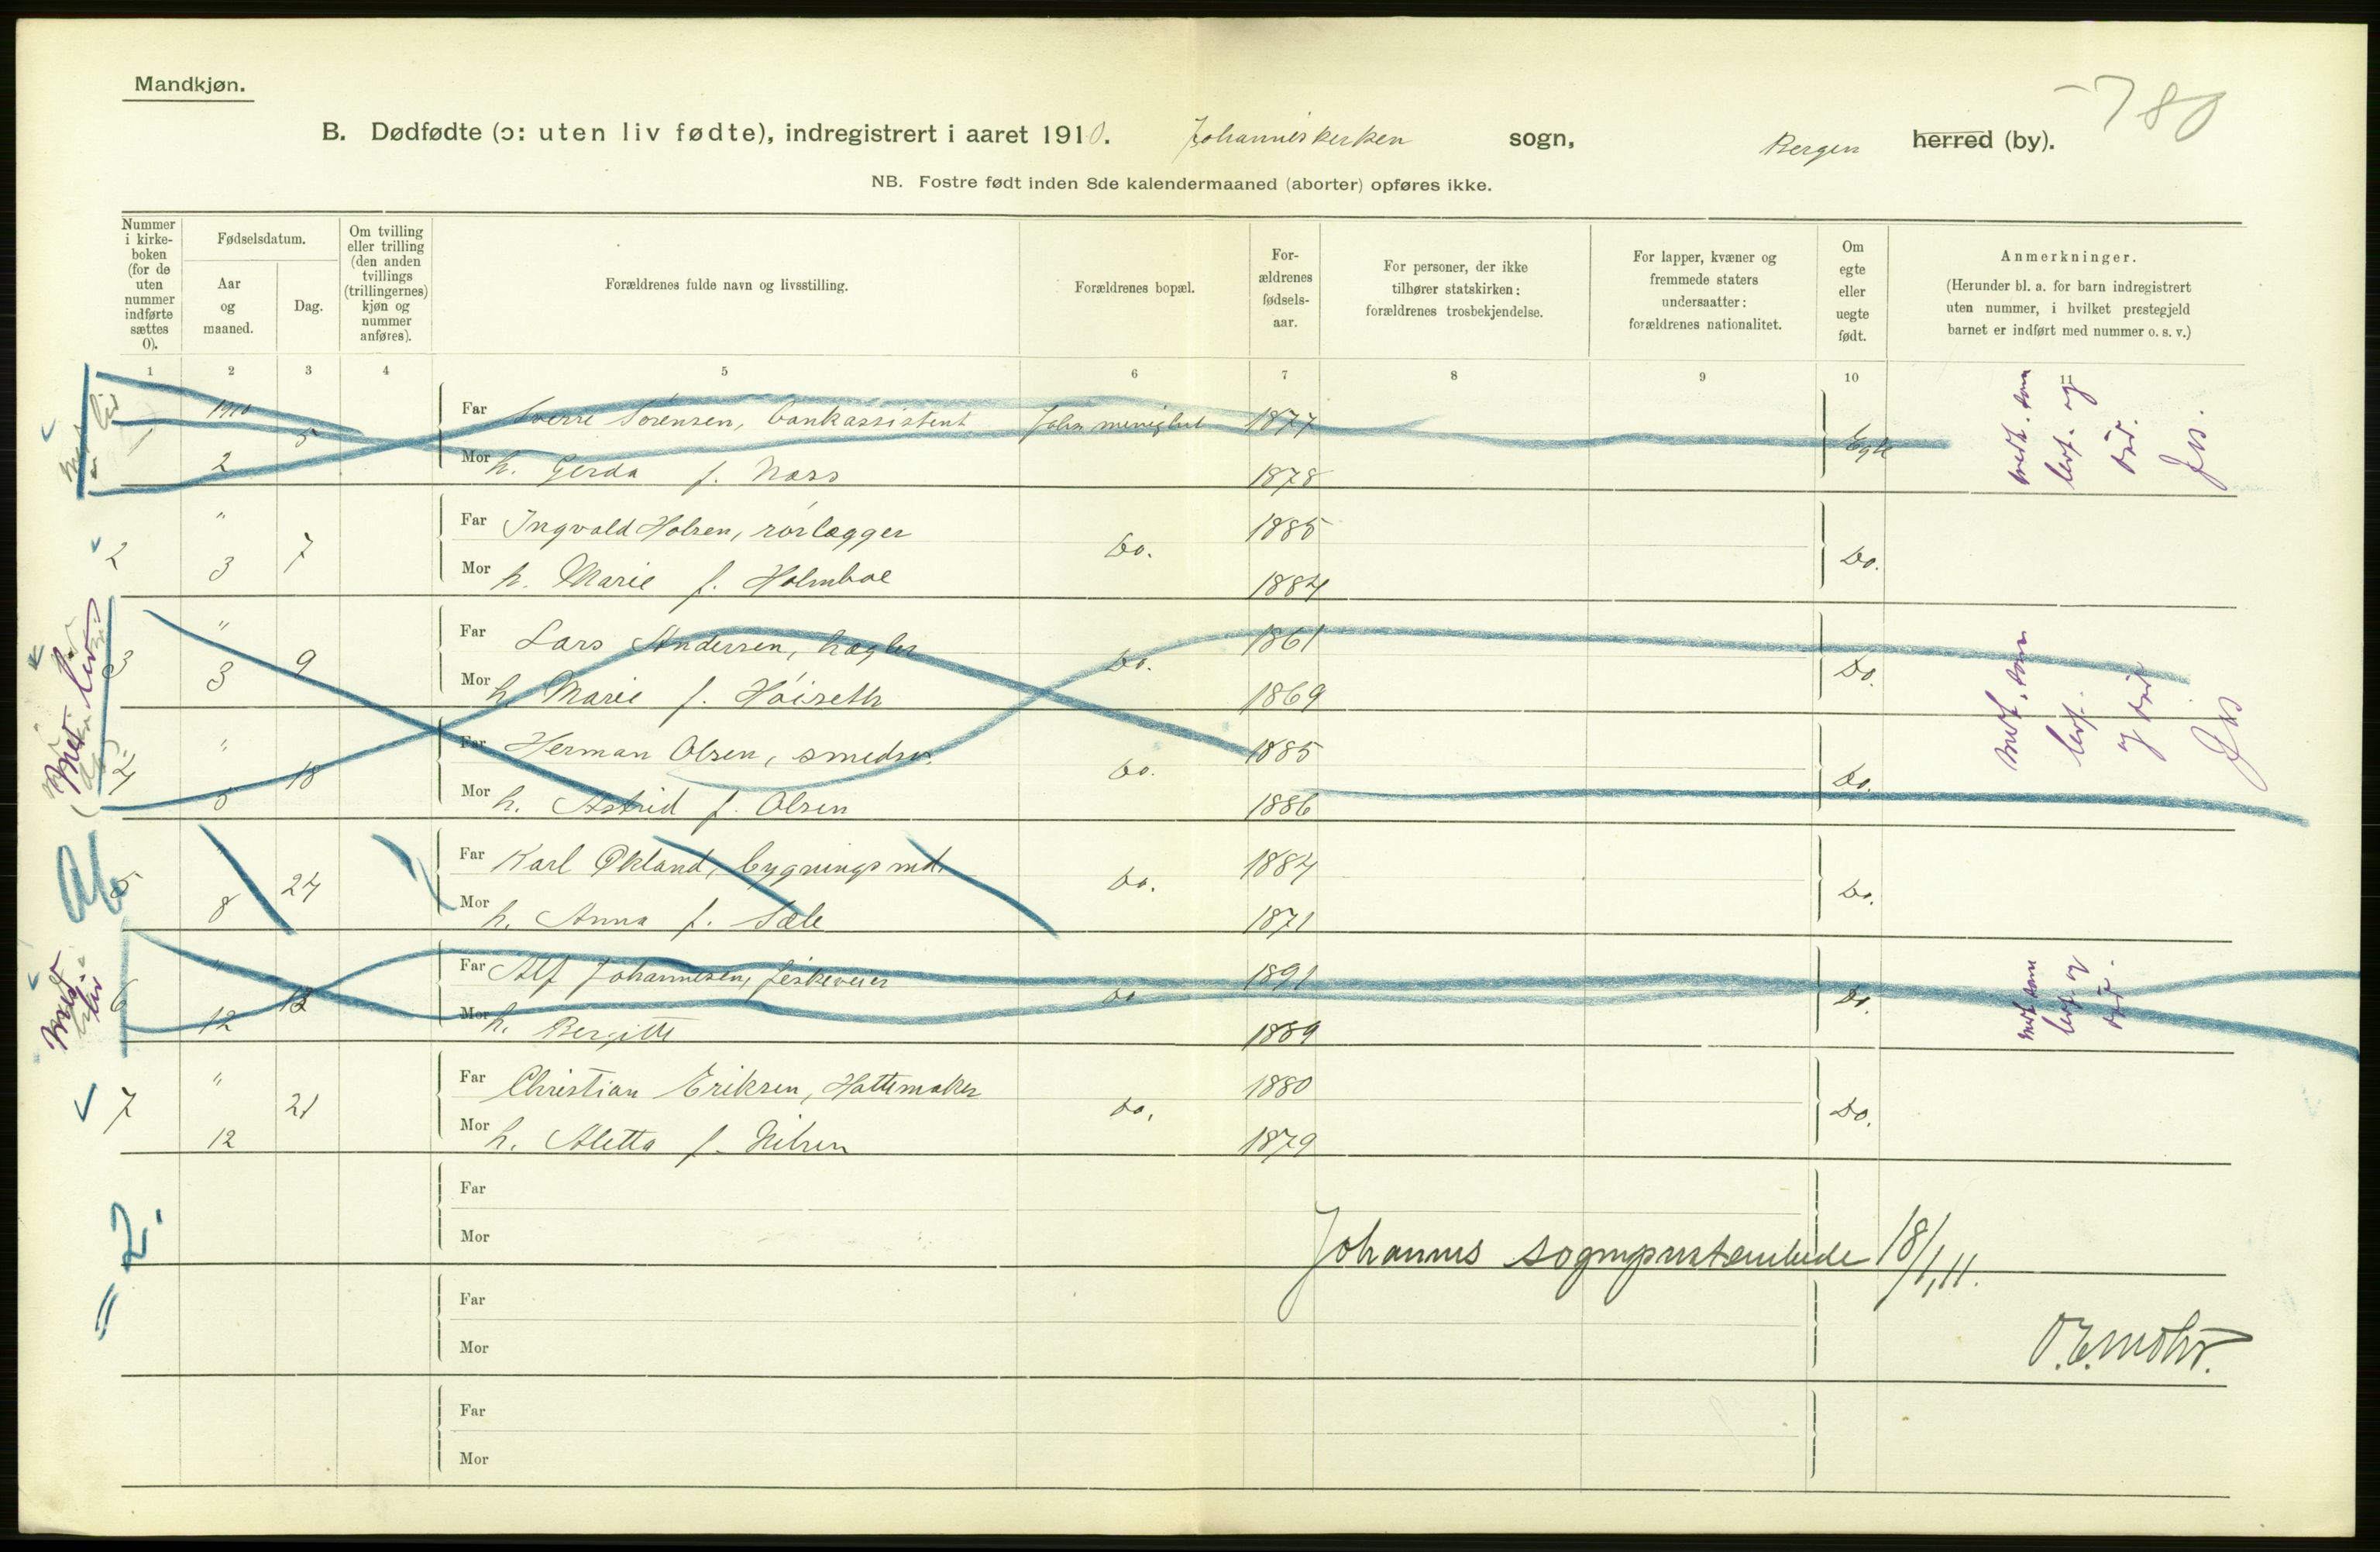 Mandkjøn.
780
B. Dødfødte (ɔ: uten liv fødte), indregistrert i aaret 1910. Johanneskirken sogn, Bergen herred (by).
NB. Fostre født inden 8de kalendermaaned (aborter) opføres ikke.
Nummer i kirke-boken (for de uten nummer indførte sættes 0).
Fødselsdatum.
Aar og maaned.
Dag.
Om tvilling eller trilling (den anden tvillings (trillingernes) kjøn og nummer anføres).
Forældrenes fulde navn og livsstilling.
Forældrenes bopæl.
For-ældrenes fødsels-aar.
For personer, der ikke tilhører statskirken: forældrenes trosbekjendelse.
For lapper, kvæner og fremmede staters undersaatter: forældrenes nationalitet.
Om egte eller uegte født.
Anmerkninger.
(Herunder bl. a. for barn indregistrert uten nummer, i hvilket prestegjeld barnet er indført med nummer o. s. v.)
1 2 3 4 5 6 7 8 9 10 11
1 1910 2 5 Far Sverre Sörensen, bankassistent Johs menighet 1877 Egte
Mor h. Gerda f. Næss 1878
2 " 3 7 Far Ingvald Holsen, rörlægger Do. 1885 Do.
Mor h. Marie f. Holmboe 1884
3 " 3 9 Far Lars Andersen, Do. 1861 Do.
Mor h. Marie f. Höiseth 1869
4 " 5 18 Far Herman Olsen, smedsv. Do. 1885 Do.
Mor h. Astrid f. Olsen 1886
Ab
5 " 8 24 Far Karl Økland, bygningssnd. Do. 1884 Do.
Mor h. Anna f. Sæle 1871
6 " 12 12 Far Alf Johannesen, Do 1891 Do.
Mor h. Bergitte 1889
7 " 12 21 Far Christian Eriksen, Hattemaker Do. 1880 Do.
Mor h. Aletta f. Nilsen 1879
= 2.
Far
Mor
Johannes sogneprestembede 18/1, 11.
Far
O. E. Mohr.
Mor
Far
Mor